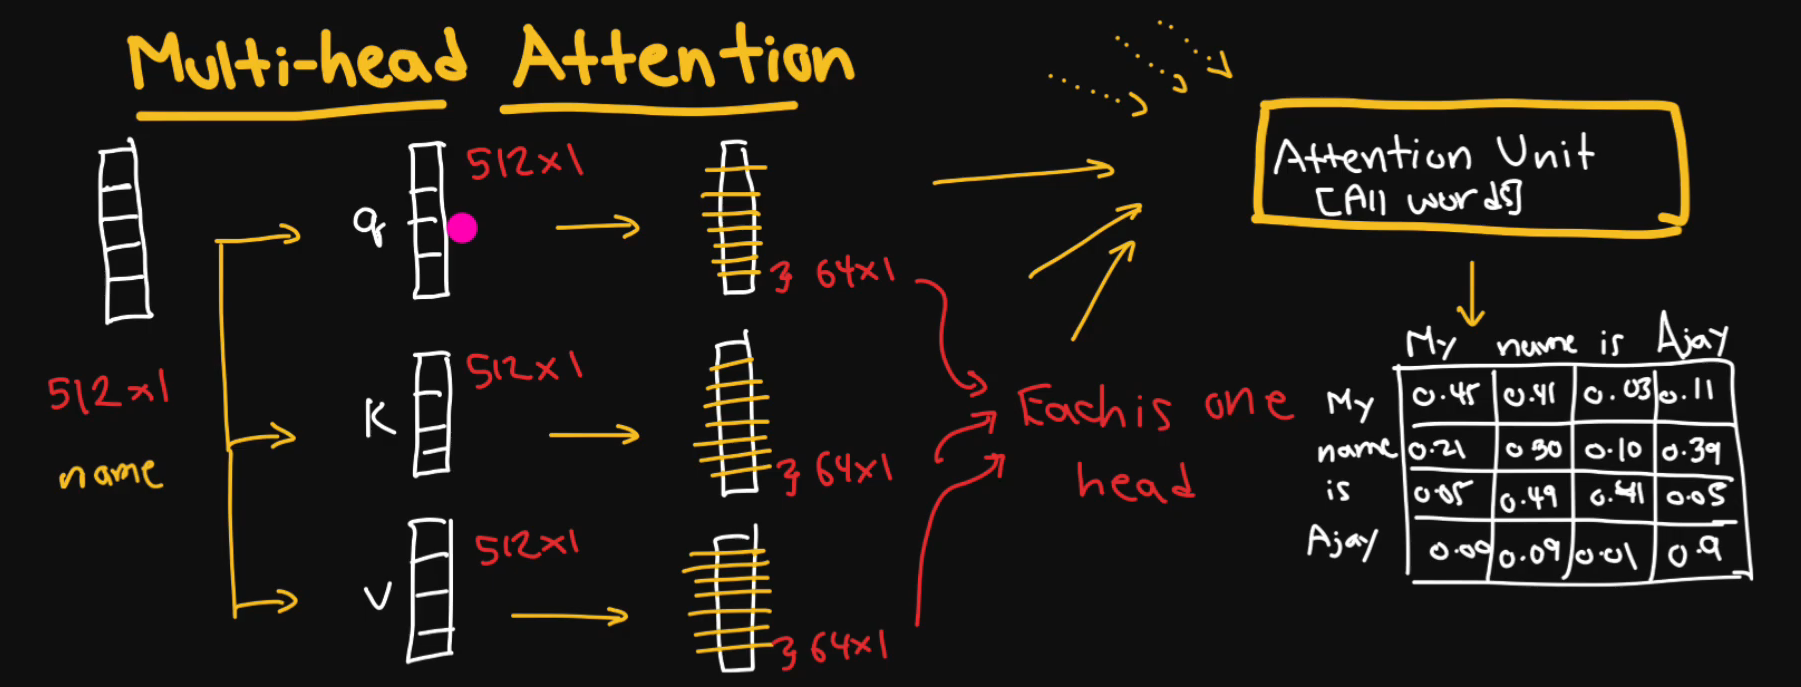 Multi-head Attention
512x1
name
q 512x1
} 64x1
K 512x1
} 64x1
V 512x1
} 64x1
Each is one
head
Attention Unit
[All words]
My name is Ajay
My 0.45 0.41 0.03 0.11
name 0.21 0.30 0.10 0.39
is 0.05 0.49 0.41 0.05
Ajay 0.00 0.09 0.01 0.9